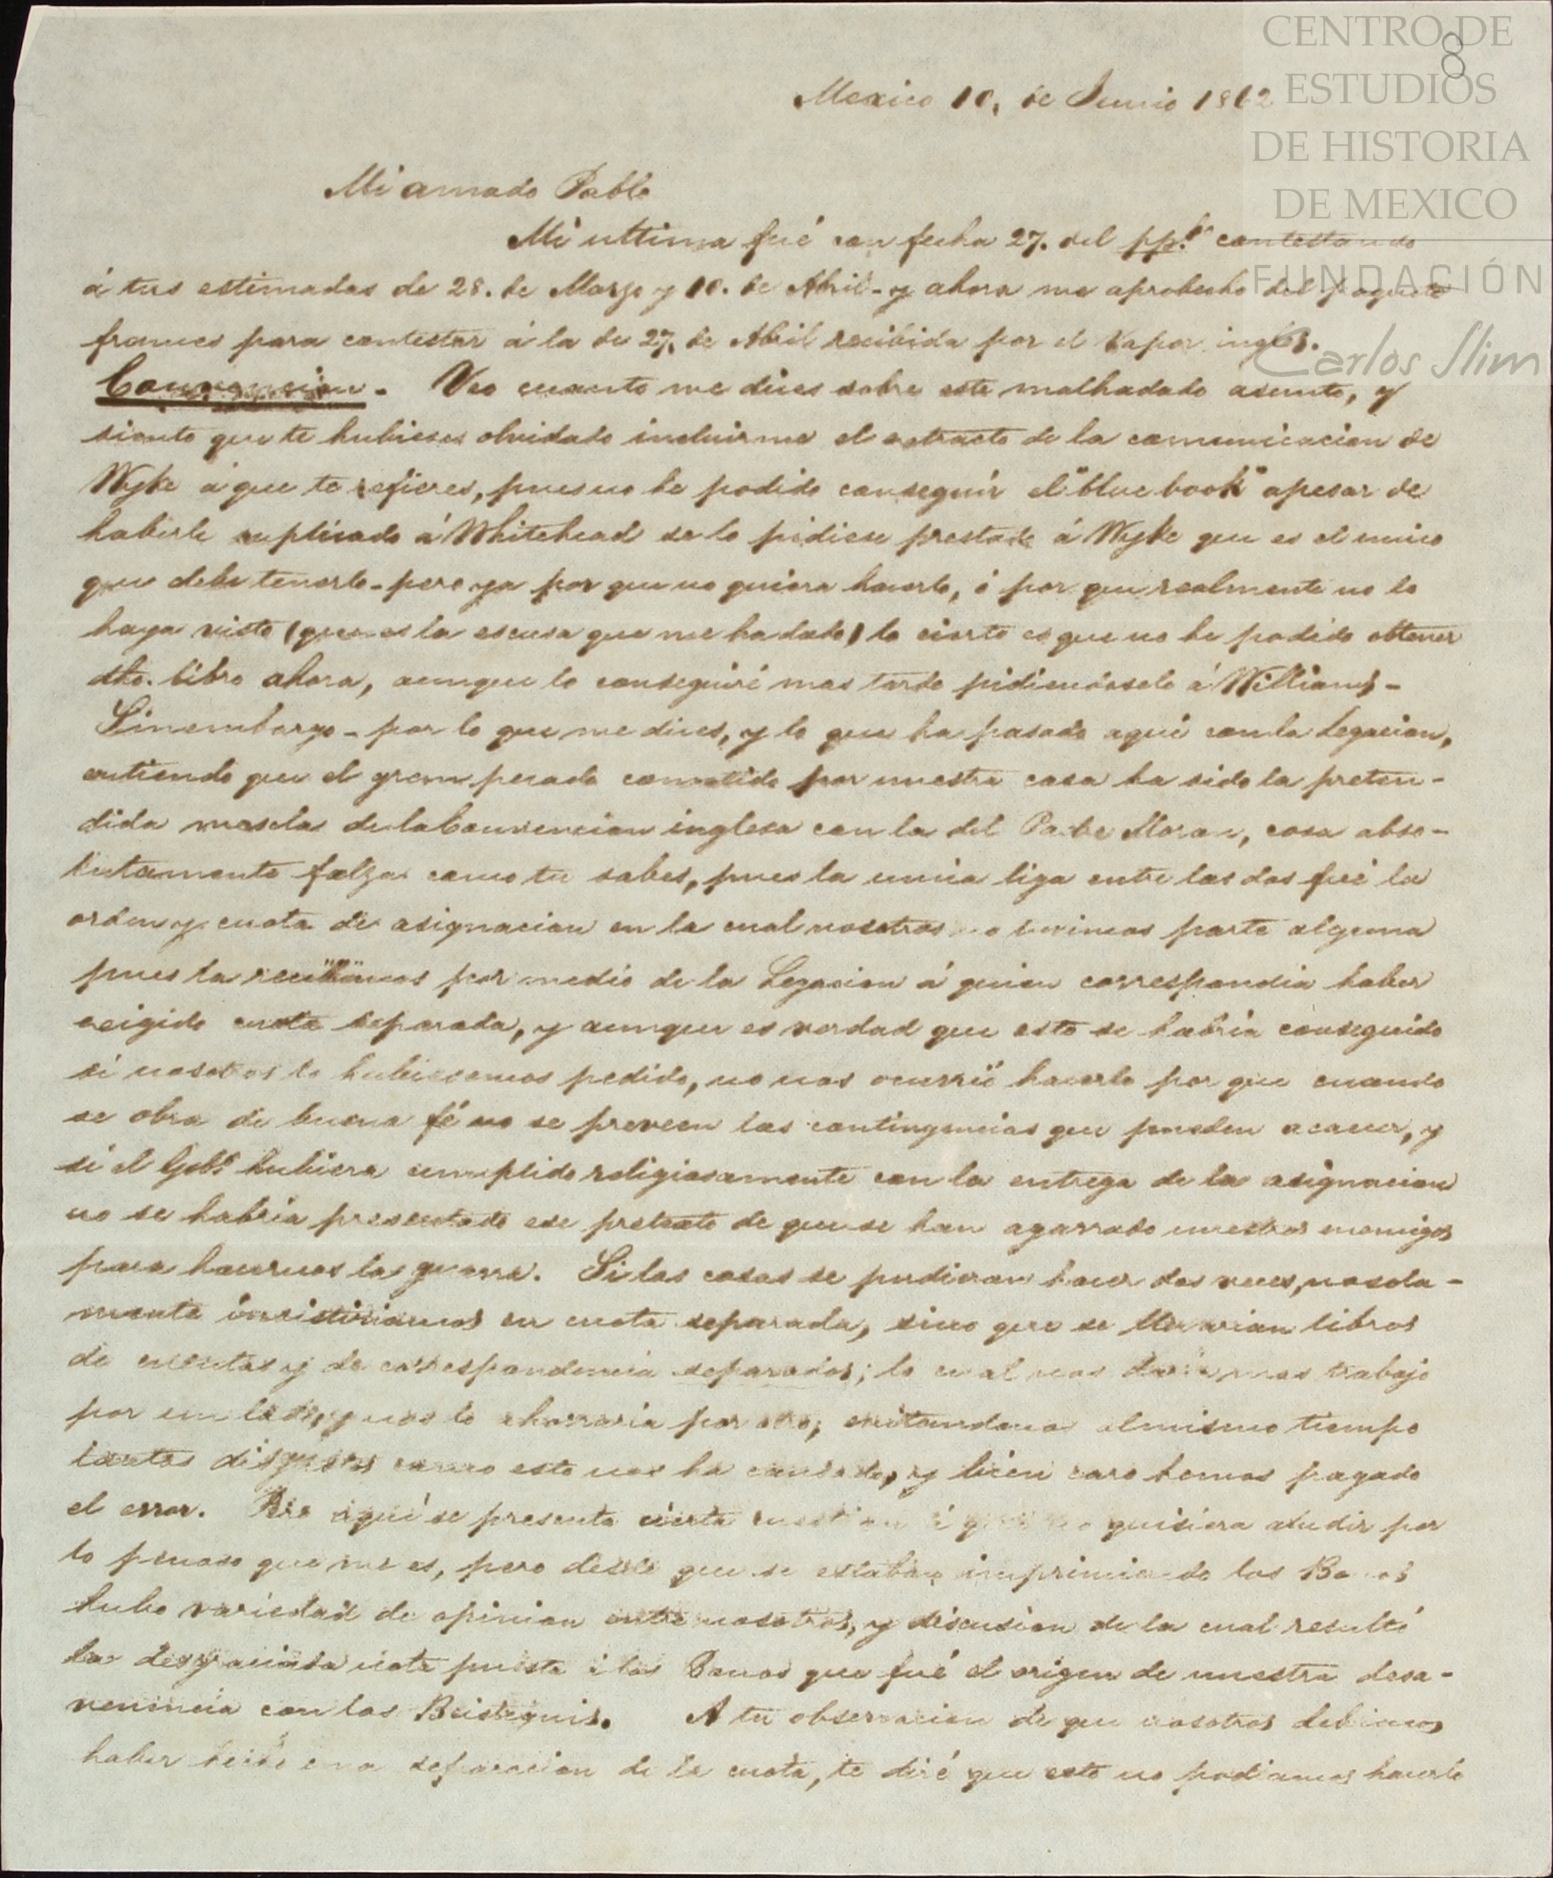 CENTRO DE
ESTUDIOS
DE HISTORIA
DE MEXICO
FUNDACIÓN
Carlos Slim
8
Mexico 10. de Junio 1862
Mi amado Pablo
Mi ultima fué con fecha 27. del pp.º contestando
á tus estimadas de 28. de Marzo y 10. de Abril - y ahora me aprobecho del paquete
frances para contestar á la de 27. de Abril recibida por el Vapor ingles.
Convencion. - Veo cuanto me dices sobre este malhadado asunto, y
siento que te hubieses olvidado incluirme el extracto de la comunicacion de
Wyke á que te refieres, pues no he podido conseguir el "blue book" apesar de
haberle suplicado á Whitehead se lo pidiese prestado á Wyke que es el unico
que debe tenerlo - pero ya por que no quiera hacerlo, ó por que realmente no lo
haya visto (que es la escusa que me ha dado) lo cierto es que no he podido obtener
dho. libro ahora, aunque lo conseguiré mas tarde pidiendoselo á Williams -
Sinembargo - por lo que me dices, y lo que ha pasado aqui con la Legacion,
entiendo que el gran pecado cometido por nuestra casa ha sido la preten-
dida mescla de la Convencion inglesa con la del Padre Moran, cosa abso-
lutamente falza como tu sabes, pues la unica liga entre las dos fué la
orden y cuota de asignacion en la cual nosotros no tuvimos parte alguna
pues la recibimos por medio de la Legacion á quien correspondia haber
exigido cuota separada, y aunque es verdad que esto se habria conseguido
si nosotros lo hubiesemos pedido, no nos ocurrió hacerlo por que cuando
se obra de buena fé no se preveen las contingencias que pueden acaecer, y
si el Gobº hubiera cumplido religiosamente con la entrega de la asignacion
no se habria presentado ese pretexto de que se han agarrado nuestros enemigos
para hacernos la guerra. Si las cosas se pudieran hacer dos veces, no sola-
mente insistiriamos en cuota separada, sino que se llevarian libros
de cuentas y de correspondencia separados; lo cual nos daria mas trabajo
por un lado, y nos lo ahorraria por otro, evitandonos al mismo tiempo
tantos disgustos como esto nos ha causado, y bien caro hemos pagado
el error. Pero aqui se presenta cierta cuestion á que no quisiera aludir por
lo penoso que me es, pero desde que se estaban imprimiendo los Bonos
hubo variedad de opinion entre nosotros, y discusion de la cual resultó
la desgraciada nota puesta á los Bonos que fué el origen de nuestra desa-
venencia con los Beisteguis. A tu observacion de que nosotros debiamos
haber una separacion de la cuota, te diré que esto no podiamos hacerlo